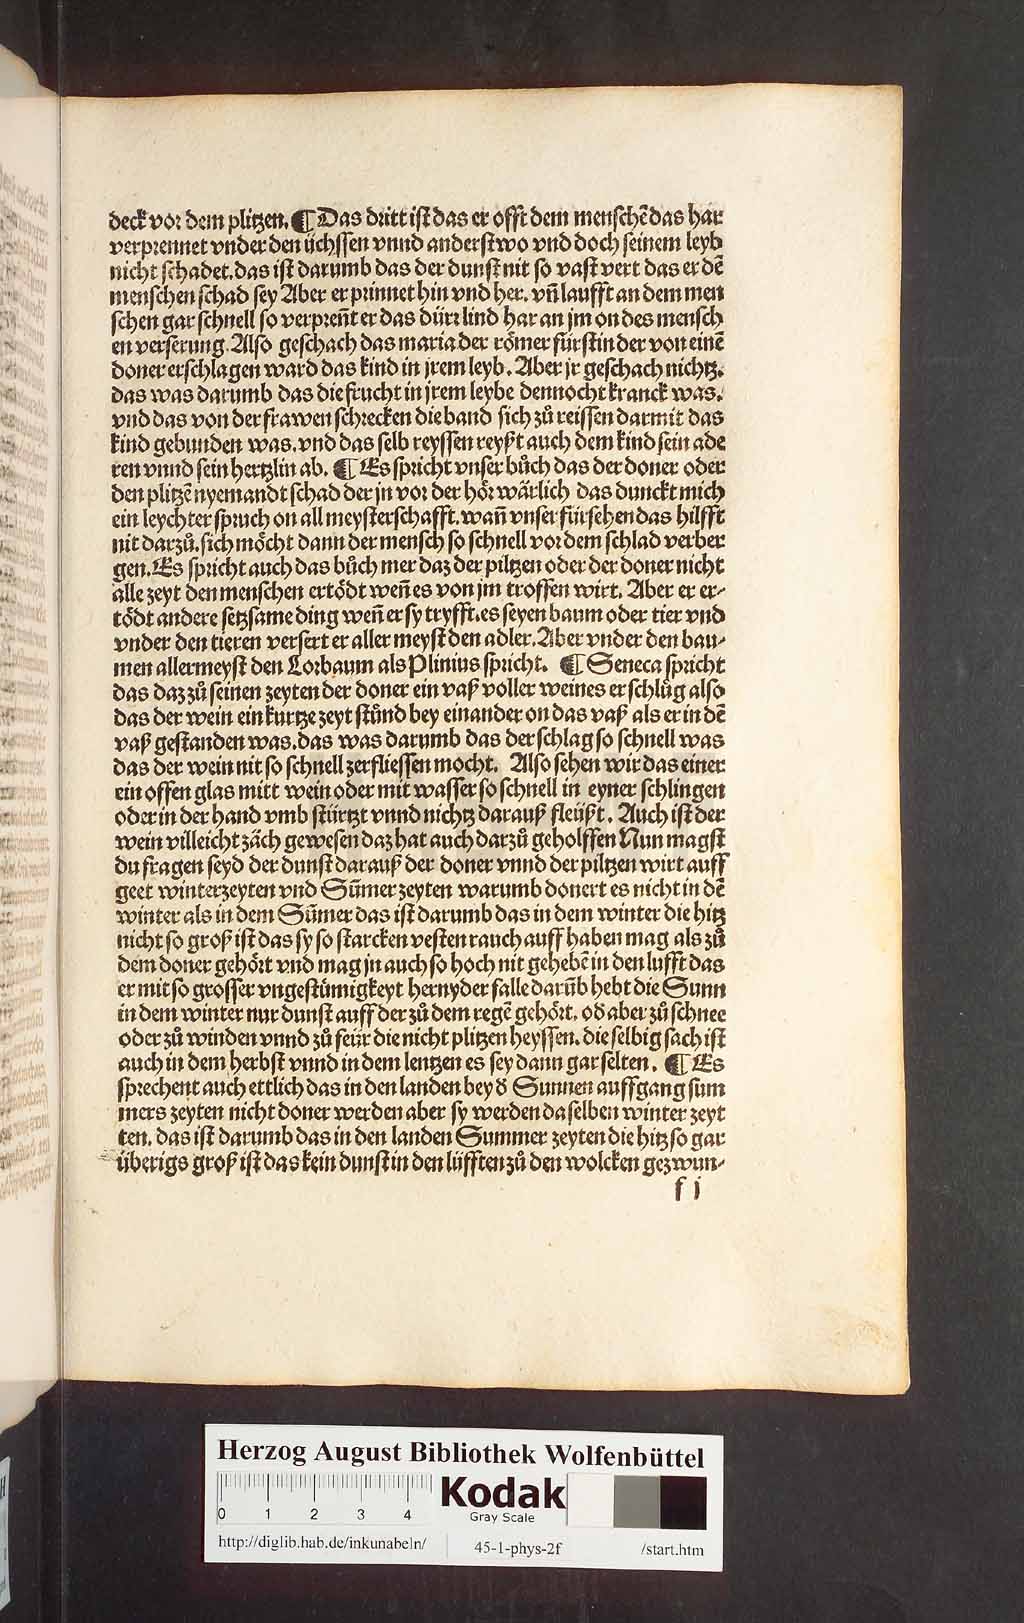 deck vor dem plitzen. ¶ Das dritt ist das er offt dem menschē das har
verprennet vnder den üchssen vnnd anderstwo vnd doch seinem leyb
nicht schadet. das ist darumb das der dunst nit so vast vert das er dē
menschen schad sey Aber er prinnet hin vnd her. vn̄ laufft an dem men
schen gar schnell so verpren̄t er das dürr lind har an jm on des mensch
en verserung. Also geschach das maria der römer fürstin der von einē
doner erschlagen ward das kind in jrem leyb. Aber jr geschach nichtz.
das was darumb das die frucht in jrem leybe dennocht kranck was.
vnd das von der frawen schrecken die band sich zů reissen darmit das
kind gebunden was. vnd das selb reyssen reyßt auch dem kind sein ade
ren vnnd sein hertzlin ab. ¶ Es spricht vnser bůch das der doner oder
den plitzē nyemandt schad der jn vor der hör wärlich das dunckt mich
ein leychter spruch on all meysterschafft. wan̄ vnser fürsehen das hilfft
nit darzů. sich möcht dann der mensch so schnell vor dem schlad verber
gen. Es spricht auch das bůch mer daz der piltzen oder der doner nicht
alle zeyt den menschen ertödt wen̄ es von jm troffen wirt. Aber er er-
tödt andere setzsame ding wen̄ er sy tryfft. es seyen baum oder tier vnd
vnder den tieren versert er aller meyst den adler. Aber vnder den bau-
men allermeyst den Lorbaum als Plinius spricht. ¶ Seneca spricht
das daz zů seinen zeyten der doner ein vaß voller weines erschlůg also
das der wein ein kurtze zeyt stůnd bey einander on das vaß als er in dē
vaß gestanden was. das was darumb das der schlag so schnell was
das der wein nit so schnell zerfliessen mocht. Also sehen wir das einer
ein offen glas mitt wein oder mit wasser so schnell in eyner schlingen
oder in der hand vmb stürtzt vnnd nichtz darauß fleüßt. Auch ist der
wein villeicht zäch gewesen daz hat auch darzů geholffen Nun magst
du fragen seyd der dunst darauß der doner vnnd der piltzen wirt auff
geet winterzeyten vnd Sūmer zeyten warumb donert es nicht in dē
winter als in dem Sūmer das ist darumb das in dem winter die hitz
nicht so groß ist das sy so starcken vesten rauch auff haben mag als zů
dem doner gehört vnd mag jn auch so hoch nit gehebē in den lufft das
er mit so grosser vngestümigkeyt hernyder falle darūb hebt die Sunn
in dem winter nur dunst auff der zů dem regē gehört. oď aber zů schnee
oder zů winden vnnd zů feür die nicht plitzen heyssen. die selbig sach ist
auch in dem herbst vnnd in dem lentzen es sey dann gar selten. ¶ Es
sprechent auch ettlich das in den landen bey ď Sunnen auffgang sum
mers zeyten nicht doner werden aber sy werden daselben winter zeyt
ten. das ist darumb das in den landen Summer zeyten die hitz so gar
überigs groß ist das kein dunst in den lüfften zů den wolcken gezwun-
f j
Herzog August Bibliothek Wolfenbüttel
0 1 2 3 4
Kodak
Gray Scale
http://diglib.hab.de/inkunabeln/ 45-1-phys-2f /start.htm